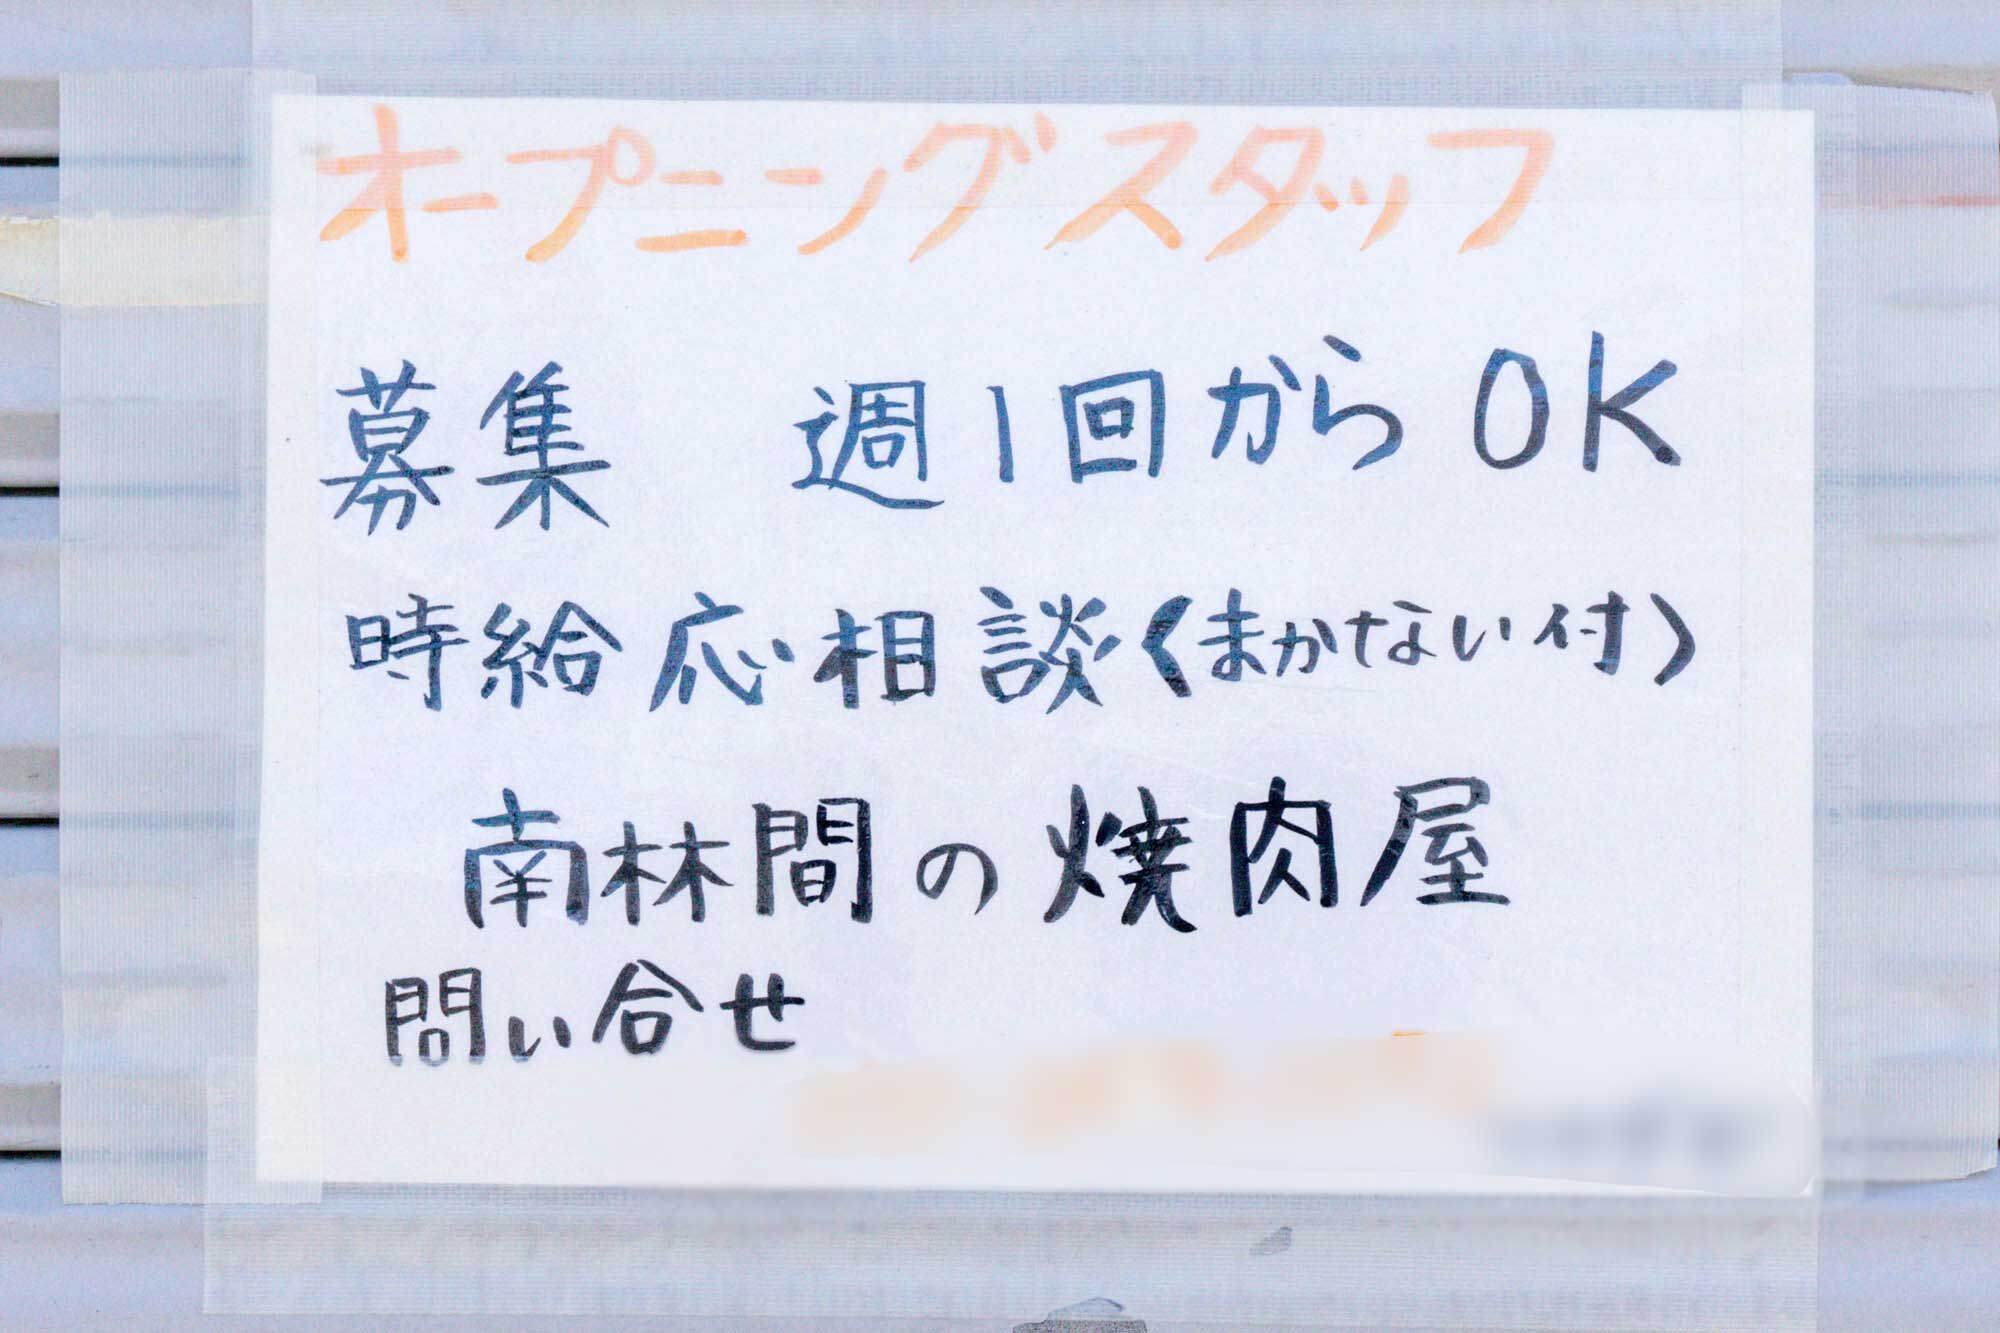 オープニングスタッフ
募集　週1回からOK
時給応相談〈まかない付〉
南林間の焼肉屋
問い合せ